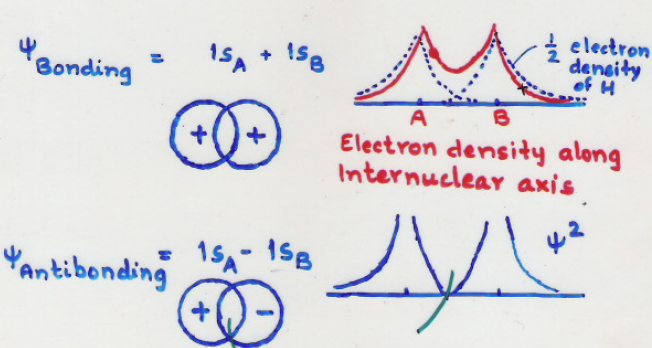 Ψ Bonding = 1s_A + 1s_B
+ +
1/2 electron
density
of H
A B
Electron density along
Internuclear axis
Ψ Antibonding = 1s_A - 1s_B
+ -
Ψ²